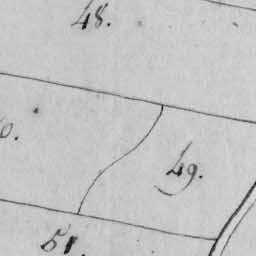 48.
49.
51.